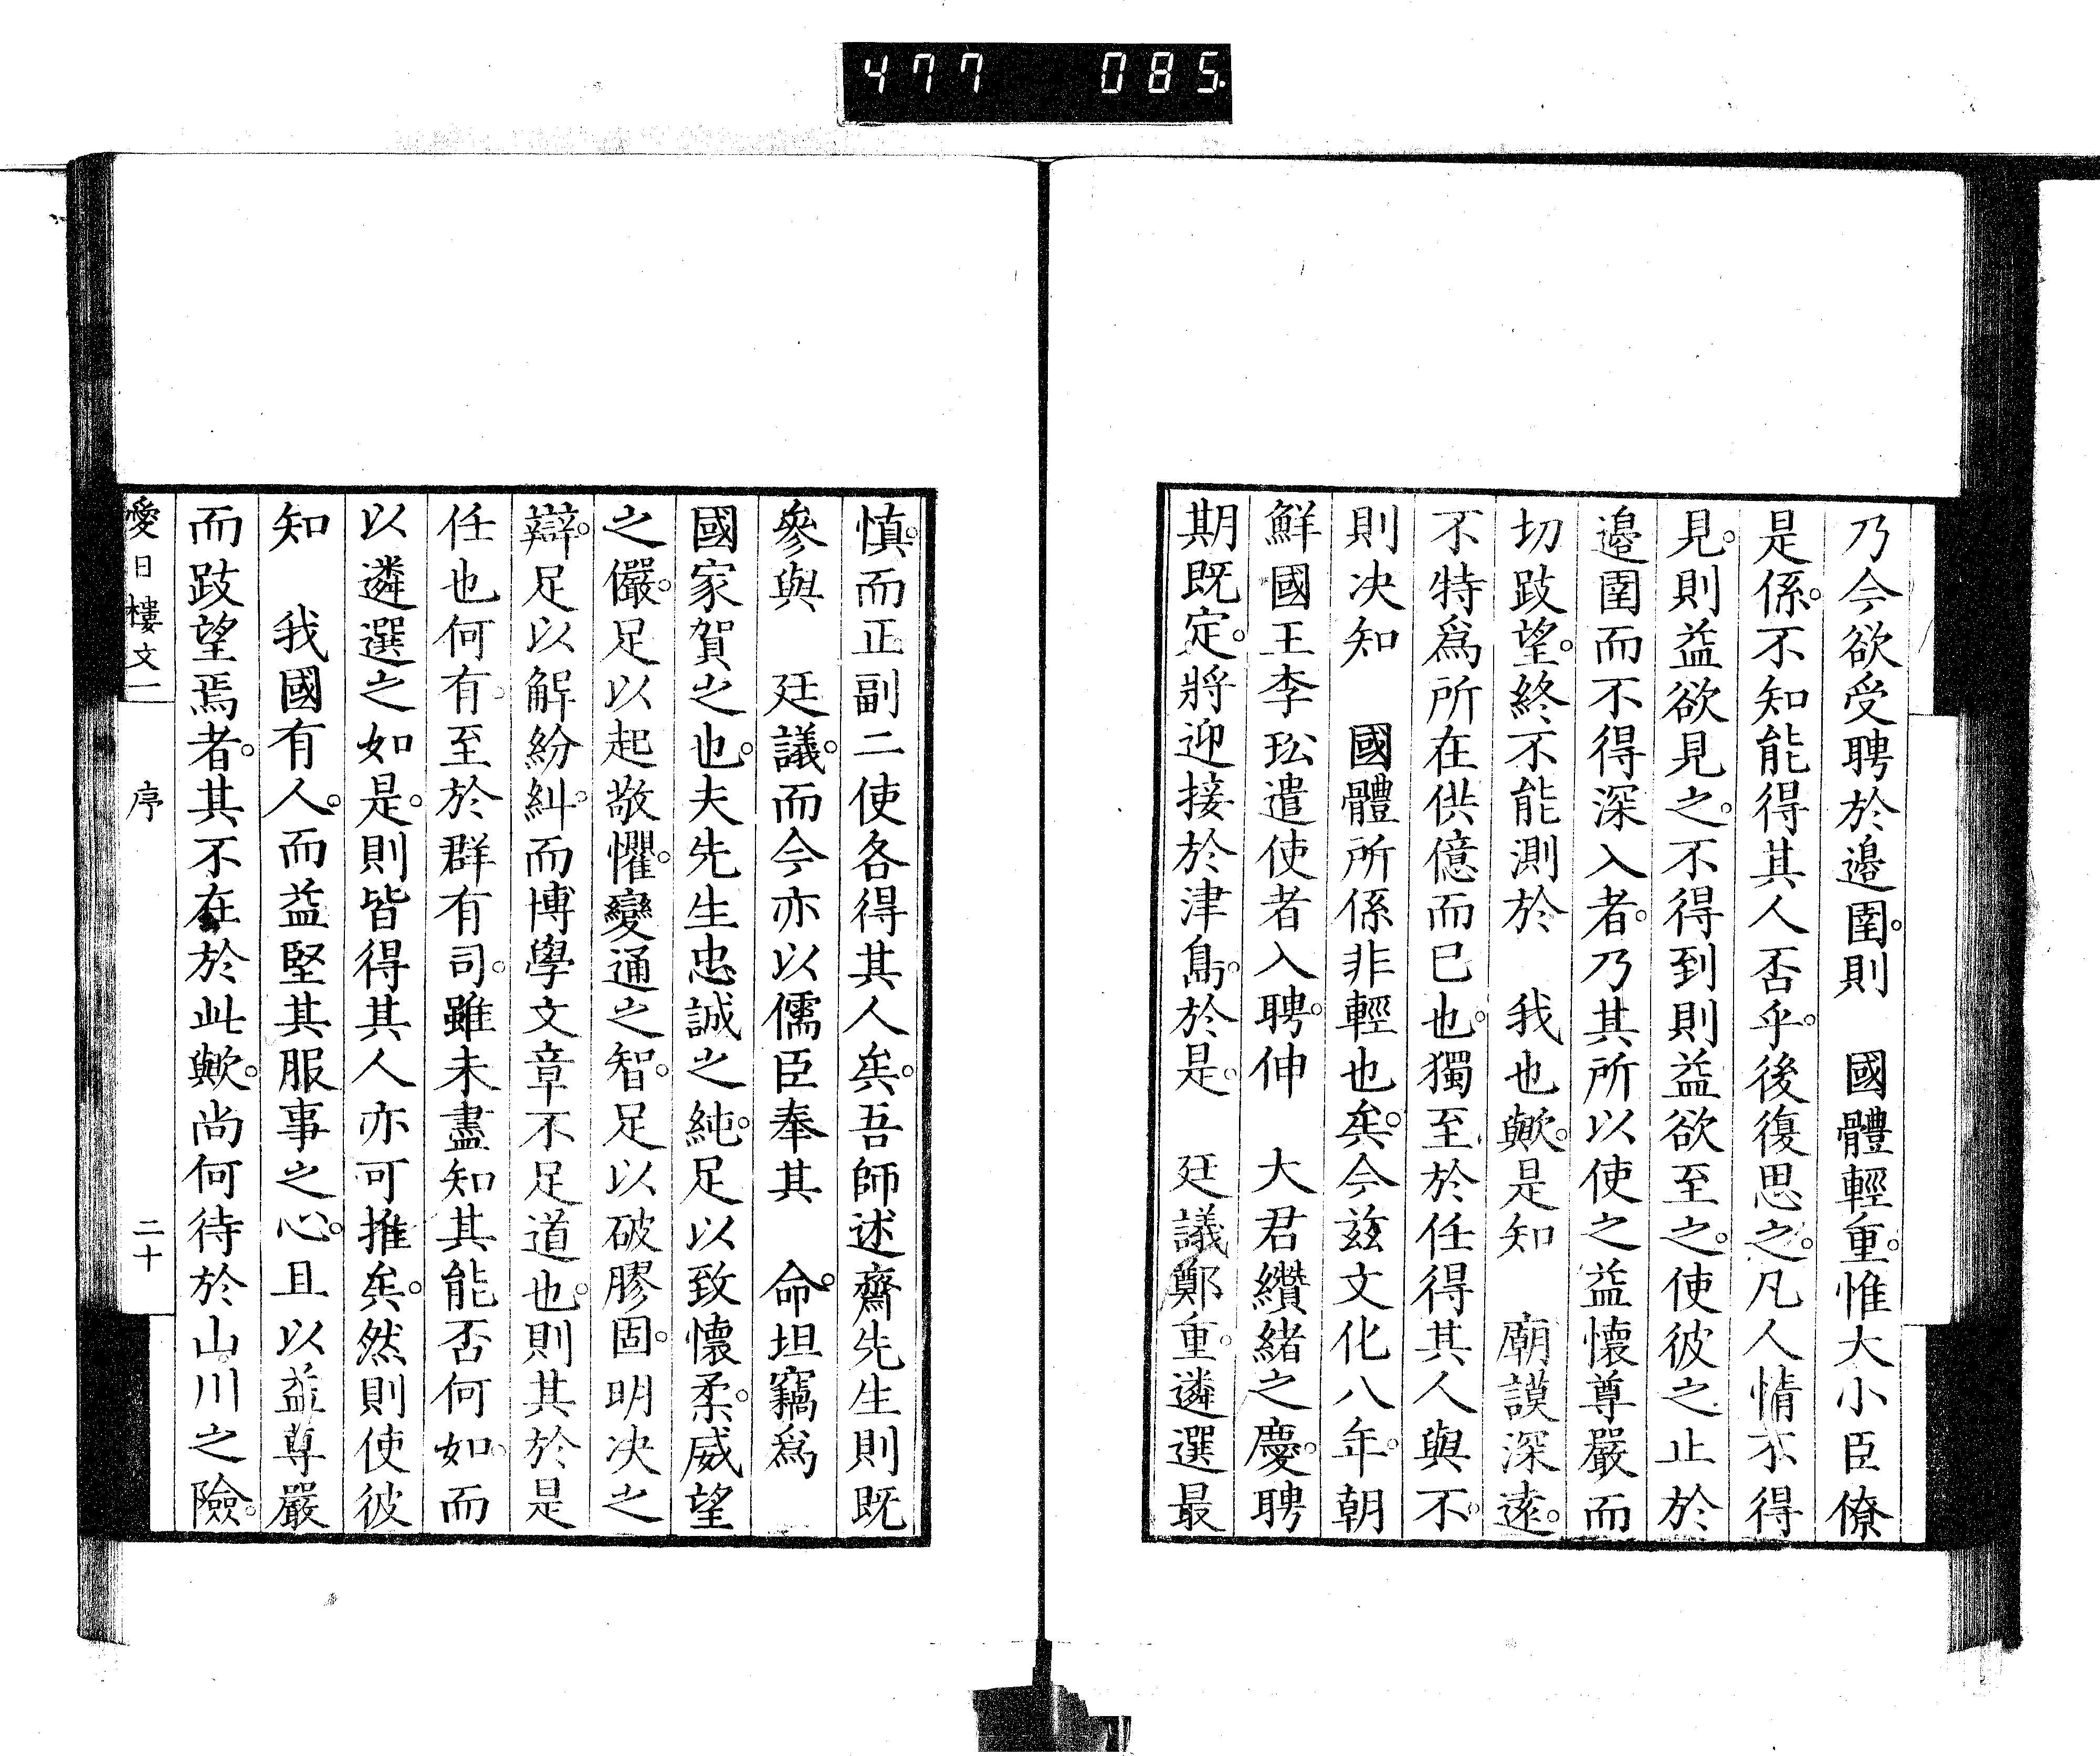 477 085.
乃今欲受聘於邉圉。則　國體輕重。惟大小臣僚
是係。不知能得其人否乎。後復思之。凡人情不得
見。則益欲見之。不得到則益欲至之。使彼之止於
邉圉而不得深入者。乃其所以使之益懷尊嚴而
切跂望。終不能測於　我也歟。是知　廟謨深遠。
不特爲所在供億而已也。獨至於任得其人與不。
則决知　國體所係非輕也矣。今玆文化八年。朝
鮮國王李玜遣使者入聘。伸　大君纘緒之慶。聘
期既定。將迎接於津島。於是。　廷議鄭重。遴選最
慎。而正副二使各得其人矣。吾師述齋先生則既
參與　廷議。而今亦以儒臣奉其　命。坦竊爲
國家賀之也。夫先生忠誠之純。足以致懷柔。威望
之儼。足以起敬懼。變通之智。足以破膠固。明决之
辯。足以解紛糾。而博學文章不足道也。則其於是
任也何有。至於群有司。雖未盡知其能否何如。而
以遴選之如是。則皆得其人亦可推矣。然則使彼
知　我國有人。而益堅其服事之心。且以益尊嚴
而跂望焉者。其不在於此歟。尚何待於山川之險。
愛日樓文二　序　二十